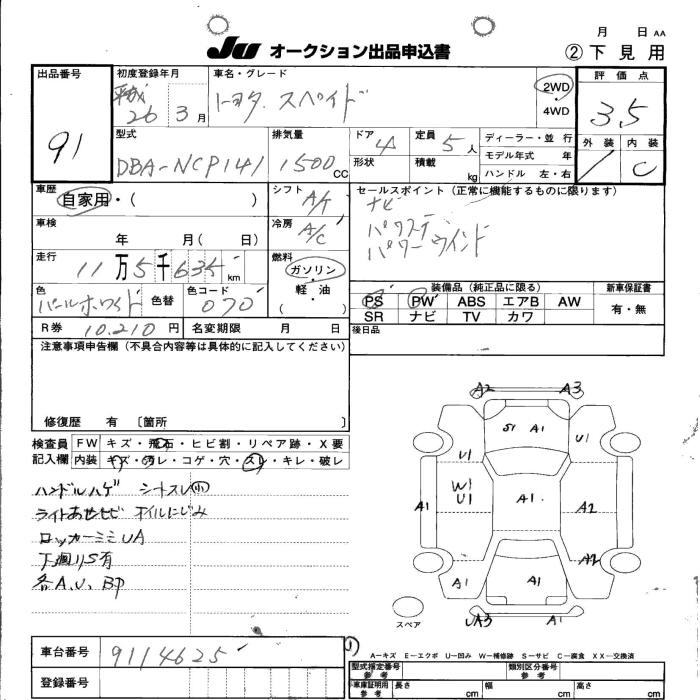 月 日 AA
JU オークション出品申込書
② 下見用
出品番号 初度登録年月 車名・グレード 評価点
91 平成 26 3 月 トヨタ スペイド 2WD 4WD 3.5
型式 排気量 ドア 4 定員 5 人 ディーラー・並 行 外装 内装
DBA-NCP141 1500 CC 形状 積載 kg モデル年式 年 C
ハンドル 左・右
車歴 シフト セールスポイント(正常に機能するものに限ります)
自家用・( ) A/T ナビ
車検 冷房 パワステ
年 月( 日) A/C パワーウインド
走行 11 万 5 千 635 km 燃料
ガソリン・軽 油 ( )
色 色替 色コード 装備品(純正品に限る) 新車保証書
パールホワイト 070 PS PW ABS エアB AW 有・無
SR ナビ TV カワ
R券 10.210 円 名変期限 月 日 後日品
注意事項申告欄(不具合内容等は具体的に記入してください)
修復歴 有 〔箇所 〕
検査員 FW キズ・飛石・ヒビ割・リペア跡・X要
記入欄 内装 キズ・汚レ・コゲ・穴・スレ・キレ・破レ
ハンドルハゲ シートスレ小
ライトあせヒビ オイルにじみ
ロッカーミミUA
下廻りS有
各A、U、BP
A2 A3
S1 A1 U1
U1
W1
U1
A1 A1 A2
A2
A1 A1
UA3 A1
スペア
A−キズ E−エクボ U−凹み W−補修跡 S−サビ C−腐食 XX−交換済
車台番号 9114625
登録番号
型式指定番号 参考 類別区分番号 参考
車庫証明用 参考 長さ cm 幅 cm 高さ cm